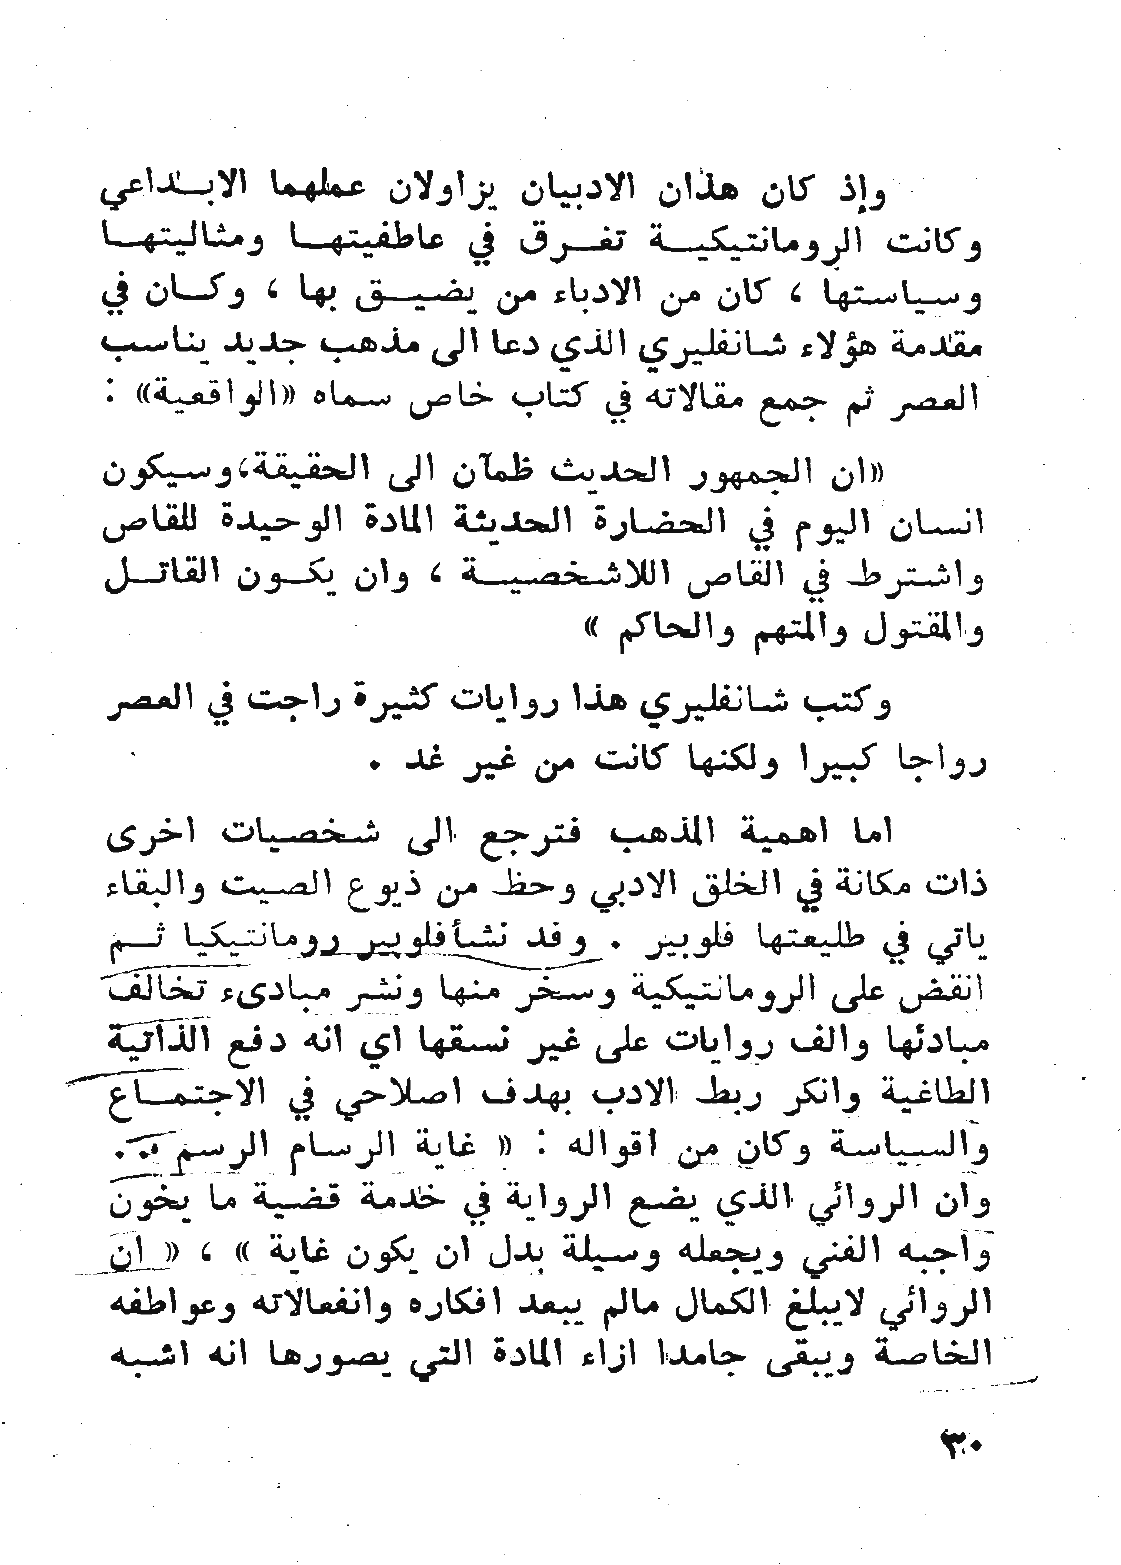 وإذ كان هذان الاديبان يزاولان عملهما الابـتداعي
وكانت الرومانتيكيـة تغـرق في عاطفيتهـا ومثاليتهـا
وسياستها ، كان من الادباء من يضيـق بها ، وكـان في
مقدمة هؤلاء شانفليري الذي دعا الى مذهب جديد يناسب
العصر ثم جمع مقالاته في كتاب خاص سماه «الواقعية» :
«ان الجمهور الحديث ظمآن الى الحقيقة،وسيكون
انسان اليوم في الحضارة الحديثة المادة الوحيدة للقاص
واشترط في القاص اللاشخصيـة ، وان يكـون القاتـل
والمقتول والمتهم والحاكم »
وكتب شانفليري هذا روايات كثيرة راجت في العصر
رواجا كبيرا ولكنها كانت من غير غد .
اما اهمية المذهب فترجع الى شخصيات اخرى
ذات مكانة في الخلق الادبي وحظ من ذيوع الصيت والبقاء
ياتي في طليعتها فلوبير . وقد نشأفلوبير رومانتيكيا ثـم
انقض على الرومانتيكية وسخر منها ونشر مبادىء تخالف
مبادئها والف روايات على غير نسقها اي انه دفع الذاتية
الطاغية وانكر ربط الادب بهدف اصلاحي في الاجتمـاع
والسياسة وكان من اقواله : « غاية الرسام الرسم ..
وان الروائي الذي يضع الرواية في خدمة قضية ما يخون
واجبه الفني ويجعله وسيلة بدل ان يكون غاية » ، « ان
الروائي لايبلغ الكمال مالم يبعد افكاره وانفعالاته وعواطفه
الخاصة ويبقى جامدا ازاء المادة التي يصورها انه اشبه
٣٠